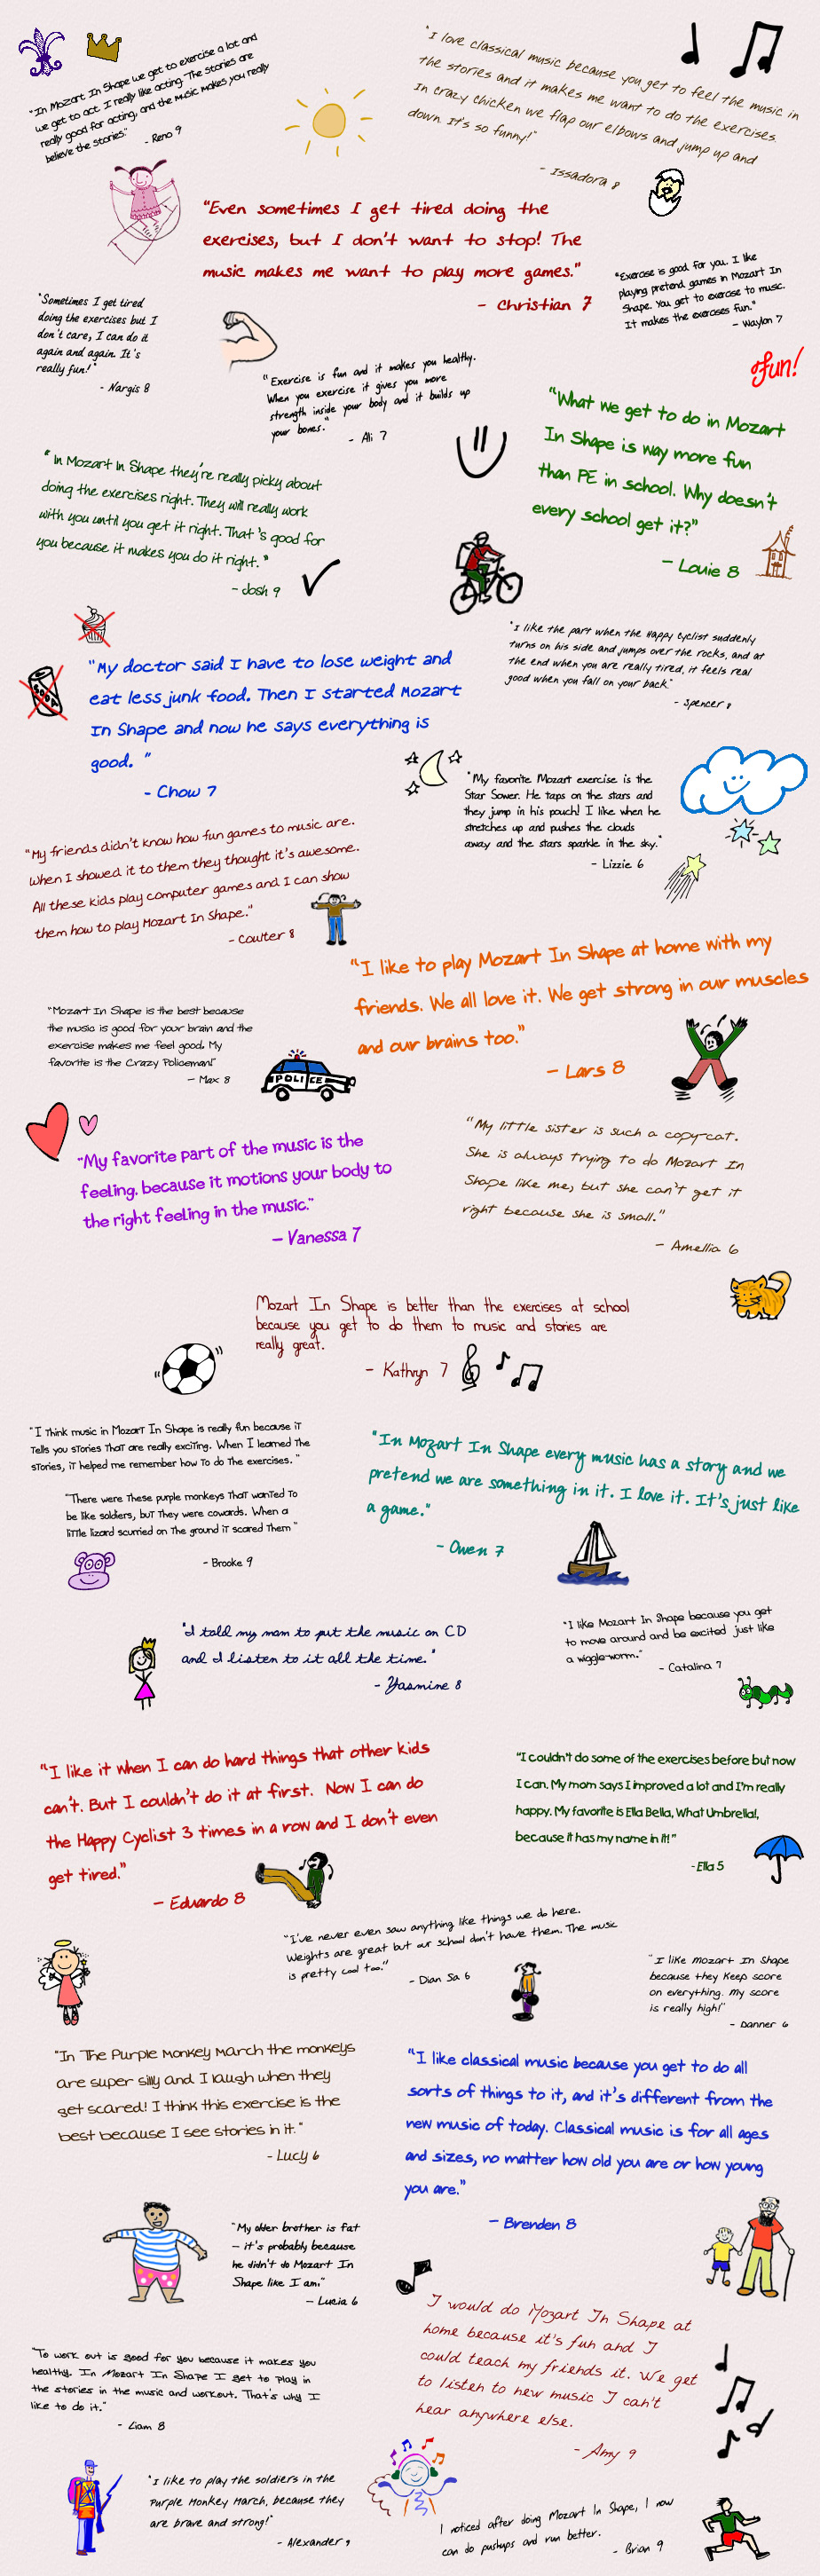 "In Mozart In Shape we get to exercise a lot and
we get to act. I really like acting. The stories are
really good for acting, and the music makes you really
believe the stories."
- Reno 9
"I love classical music because you get to feel the music in
the stories and it makes me want to do the exercises.
In crazy chicken we flap our elbows and jump up and
down. It's so funny!"
- Issadora 8
"Even sometimes I get tired doing the
exercises, but I don't want to stop! The
music makes me want to play more games."
- Christian 7
"Exercise is good for you. I like
playing pretend games in Mozart In
Shape. You get to exercise to music.
It makes the exercises fun."
- Waylon 7
"Sometimes I get tired
doing the exercises but I
don't care, I can do it
again and again. It's
really fun!"
- Nargis 8
"Exercise is fun and it makes you healthy.
When you exercise it gives you more
strength inside your body and it builds up
your bones."
- Ali 7
fun!
"What we get to do in Mozart
In Shape is way more fun
than PE in school. Why doesn't
every school get it?"
- Louie 8
"In Mozart In Shape they're really picky about
doing the exercises right. They will really work
with you until you get it right. That's good for
you because it makes you do it right."
- Josh 9
"I like the part when the Happy Cyclist suddenly
turns on his side and jumps over the rocks, and at
the end when you are really tired, it feels real
good when you fall on your back."
- Spencer 8
SODA
"My doctor said I have to lose weight and
eat less junk food. Then I started Mozart
In Shape and now he says everything is
good. "
- Chow 7
"My favorite Mozart exercise is the
Star Sower. He taps on the stars and
they jump in his pouch! I like when he
stretches up and pushes the clouds
away and the stars sparkle in the sky."
- Lizzie 6
"My friends didn't know how fun games to music are.
When I showed it to them they thought it's awesome.
All these kids play computer games and I can show
them how to play Mozart In Shape."
- Coulter 8
"I like to play Mozart In Shape at home with my
friends. We all love it. We get strong in our muscles
and our brains too."
- Lars 8
"Mozart In Shape is the best because
the music is good for your brain and the
exercise makes me feel good. My
favorite is the Crazy Policeman!"
- Max 8
POLICE
"My favorite part of the music is the
feeling, because it motions your body to
the right feeling in the music."
- Vanessa 7
"My little sister is such a copy-cat.
She is always trying to do Mozart In
Shape like me, but she can't get it
right because she is small."
- Amellia 6
Mozart In Shape is better than the exercises at school
because you get to do them to music and stories are
really great.
- Kathryn 7
"I Think music in Mozart In Shape is really fun because it
tells you stories that are really exciting. When I learned the
stories, it helped me remember how to do the exercises. "
"There were these purple monkeys that wanted to
be like soldiers, but they were cowards. When a
little lizard scurried on the ground it scared them"
- Brooke 9
"In Mozart In Shape every music has a story and we
pretend we are something in it. I love it. It's just like
a game."
- Owen 7
"I told my mom to put the music on CD
and I listen to it all the time."
- Yasmine 8
"I like Mozart In Shape because you get
to move around and be excited just like
a wiggle-worm."
- Catalina 7
"I like it when I can do hard things that other kids
can't. But I couldn't do it at first. Now I can do
the Happy Cyclist 3 times in a row and I don't even
get tired."
- Eduardo 8
"I couldn't do some of the exercises before but now
I can. My mom says I improved a lot and I'm really
happy. My favorite is Ella Bella, What Umbrella!,
because it has my name in it!"
- Ella 5
"I've never even saw anything like things we do here.
Weights are great but our school don't have them. The music
is pretty cool too."
- Dian Sa 6
"I like Mozart In Shape
because they keep score
on everything. My score
is really high!"
- Danner 6
"In The Purple Monkey March the monkeys
are super silly and I laugh when they
get scared! I think this exercise is the
best because I see stories in it."
- Lucy 6
"I like classical music because you get to do all
sorts of things to it, and it's different from the
new music of today. Classical music is for all ages
and sizes, no matter how old you are or how young
you are."
- Brenden 8
"My older brother is fat
- it's probably because
he didn't do Mozart In
Shape like I am."
- Lucia 6
I would do Mozart In Shape at
home because it's fun and I
could teach my friends it. We get
to listen to new music I can't
hear anywhere else.
- Amy 9
"To work out is good for you because it makes you
healthy. In Mozart In Shape I get to play in
the stories in the music and workout. That's why I
like to do it."
- Liam 8
"I like to play the soldiers in the
Purple Monkey March, because they
are brave and strong!"
- Alexander 9
I noticed after doing Mozart In Shape, I now
can do pushups and run better.
- Brian 9